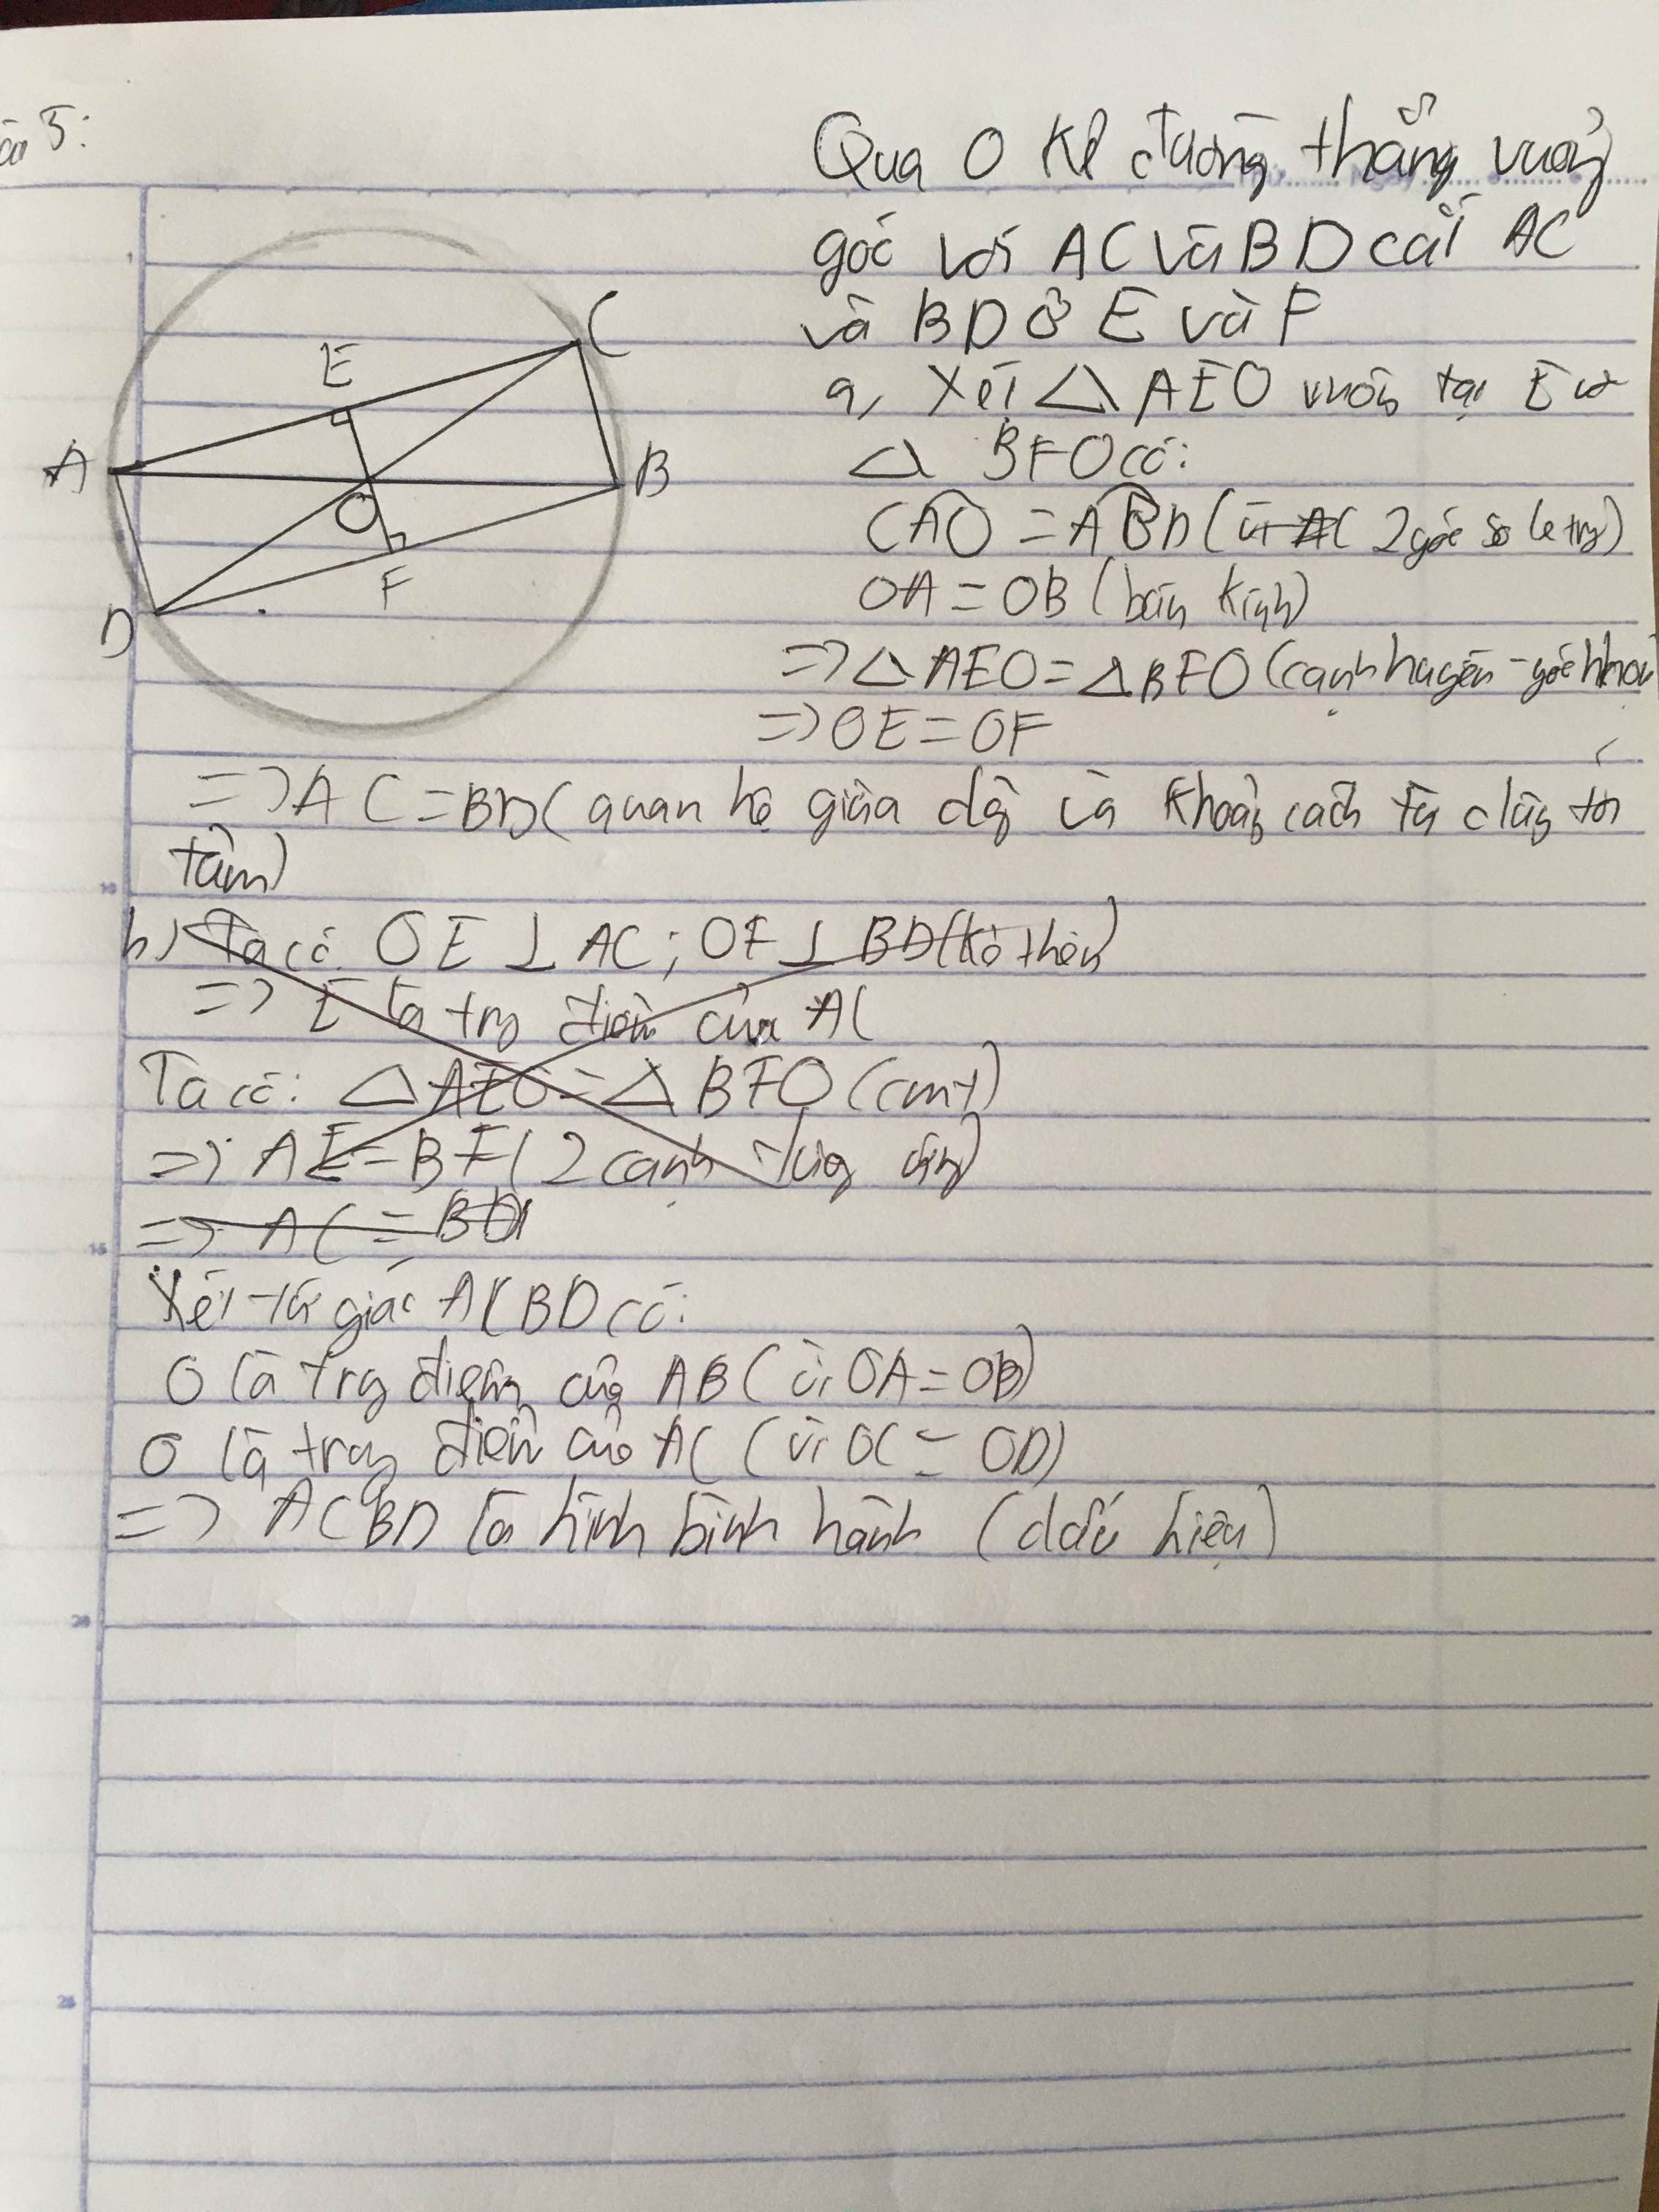 5:
Qua O kẻ đường thẳng vuông
góc với AC và BD cắt AC
và BD ở E và F
a, Xét △ AEO vuông tại E và
△ BFO có:
CAO = ABD (vì AC 2 góc so le trg)
OA = OB (bán kính)
=> △ AEO = △ BFO (cạnh huyền - góc nhọn
=> OE = OF
=> AC = BD (quan hệ giữa dây và khoảng cách từ dây tới
tâm)
b) Ta có OE ⊥ AC ; OF ⊥ BD (kẻ thêm)
=> E là trg điểm của AC
Ta có: △ AEO = △ BFO (cmt)
=> AE = BF (2 cạnh tương ứng)
=> AC = BD
Xét tứ giác ACBD có:
O là trg điểm của AB (vì OA = OB)
O là trg điểm của AC (vì OC = OD)
=> ACBD là hình bình hành (dấu hiệu)
A
B
C
D
E
F
O
1
10
15
20
25